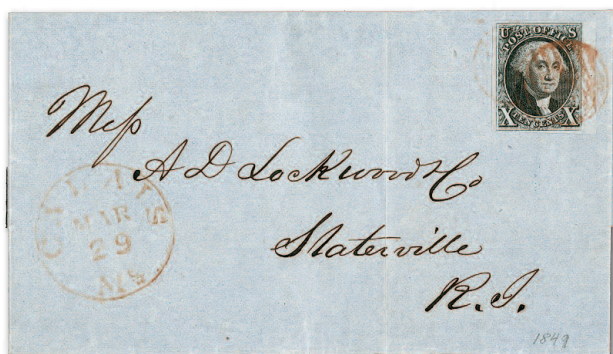 U S
POST OFFICE
X TEN CENTS X
Mess
A D Lockwood & Co
Slaterville
R.I.
MAR
29
1849